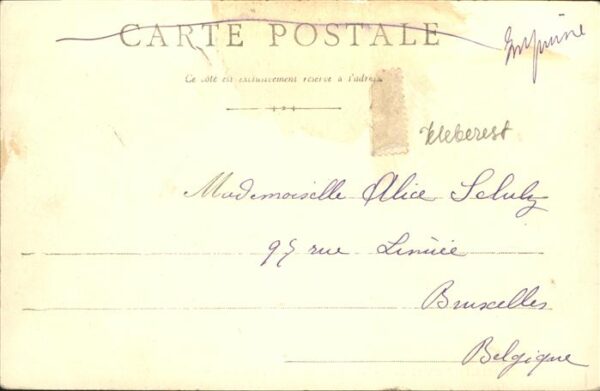 CARTE POSTALE
Imprimé
Ce côté est exclusivement réservé à l'adresse
Mademoiselle Alice Schulz
95 rue Linnée
Bruxelles
Belgique